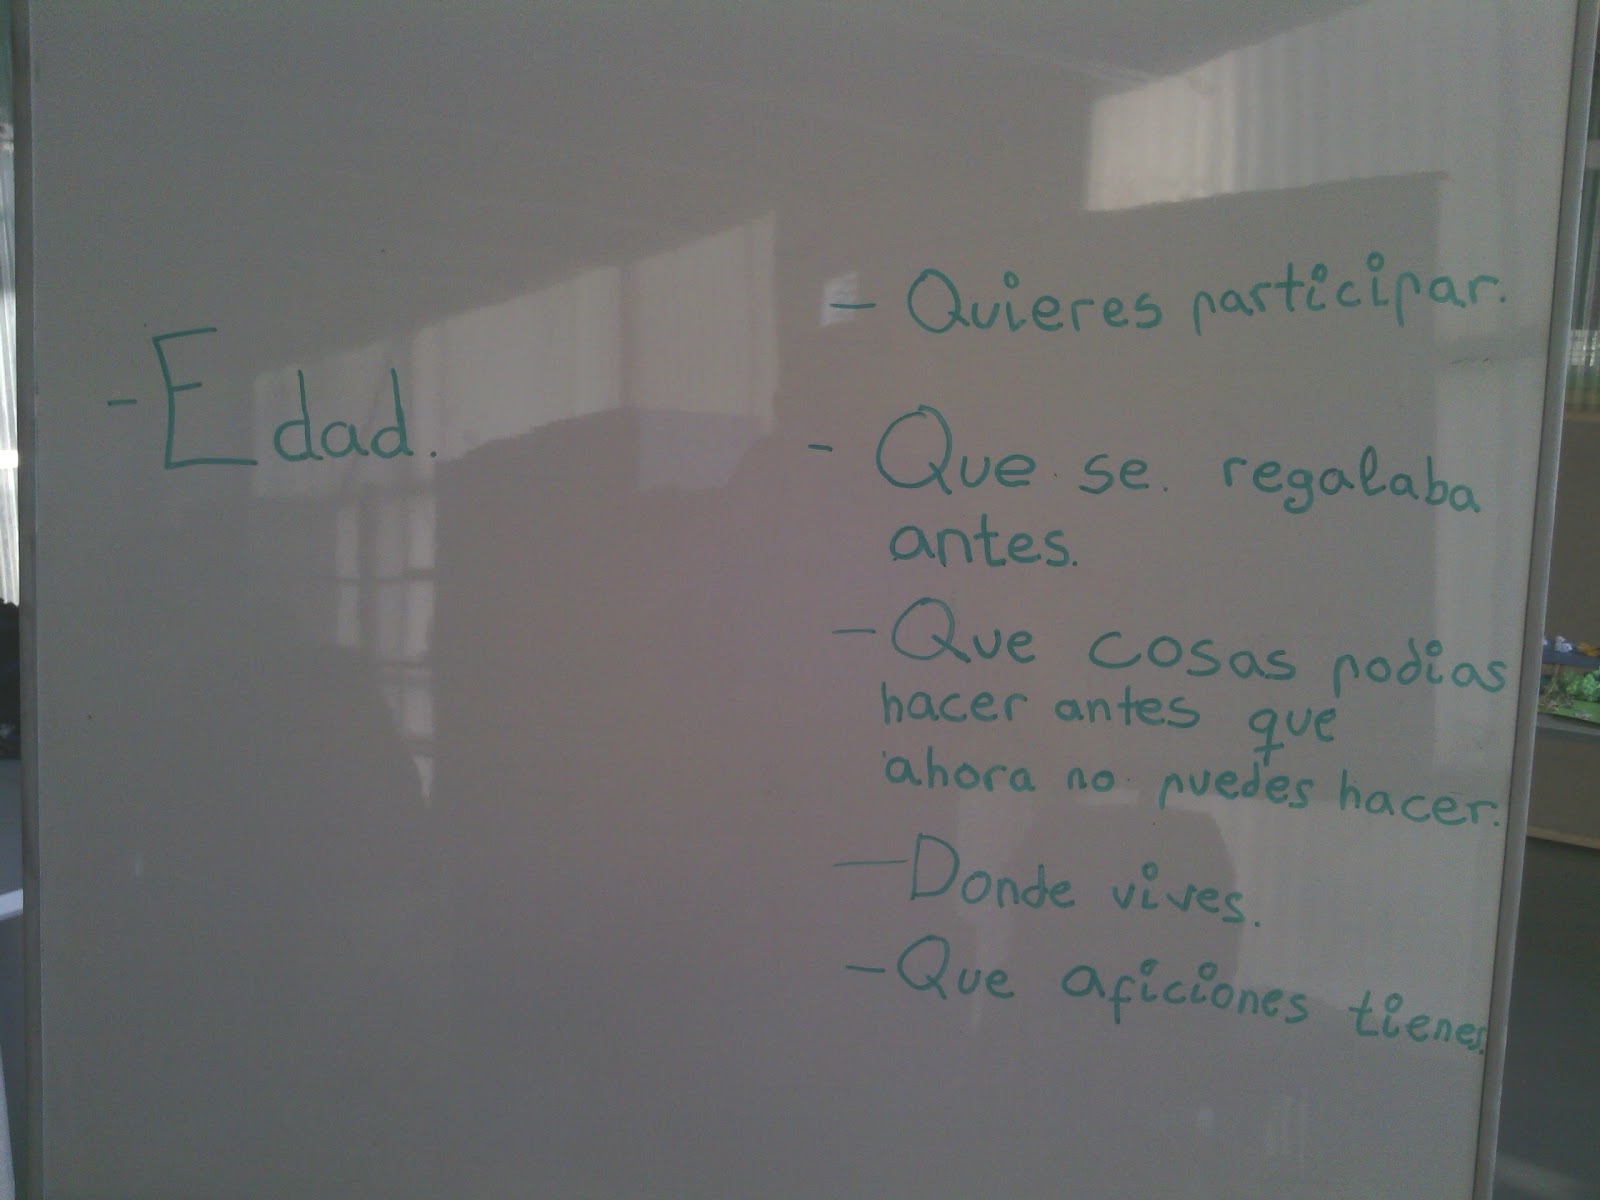 - Edad.
- Quieres participar.
- Que se. regalaba
antes.
- Que cosas podias
hacer antes que
ahora no puedes hacer.
- Donde vives.
- Que aficiones tienes.